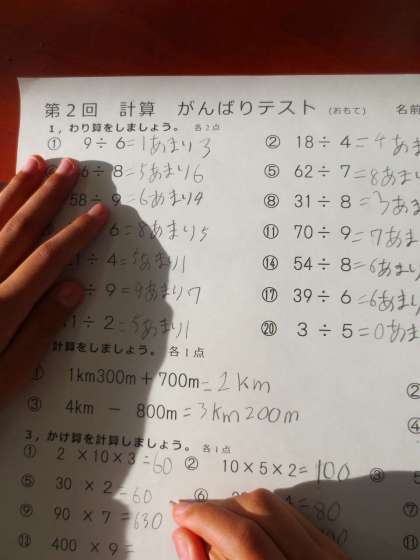 第2回 計算 がんばりテスト (おもて) 名前
1, わり算をしましょう。 各2点
① 9÷6=1あまり3 ② 18÷4=4あま
6÷8=5あまり6 ⑤ 62÷7=8あまり
58÷9=6あまり4 ⑧ 31÷8=3あま
6=8あまり5 ⑪ 70÷9=7あま
1÷4=5あまり1 ⑭ 54÷8=6あまり
÷9=9あまり7 ⑰ 39÷6=6あまり
1÷2=5あまり1 ⑳ 3÷5=0あま
計算をしましょう。 各1点
① 1km300m+700m=2km
③ 4km - 800m=3km200m
3, かけ算を計算しましょう。 各1点
① 2×10×3=60 ② 10×5×2=100 ③
⑤ 30×2=60 ⑥ =80 ⑦
⑨ 90×7=630
400×9=